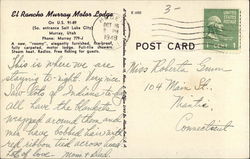 El Rancho Murray Motor Lodge
On U.S. 91-89
(So. entrance Salt Lake City)
Murray, Utah
Phone: Murray 779-J
"New", elegantly furnished, fireproof,
fully carpeted, motor lodge. Full-tile showers.
Steam heat. Radios. Free fishing for guests.
This is where we are
staying to-night. Very nice.
Saw lots of Indians to-day
all have the blankets
wrapped around them and
men have bobbed hair with
red ribbon tied across head
Lots of love Mom & Dad
POST CARD
1948
1¢
Miss Roberta Green
104 Main St.
Mantic
Connecticut